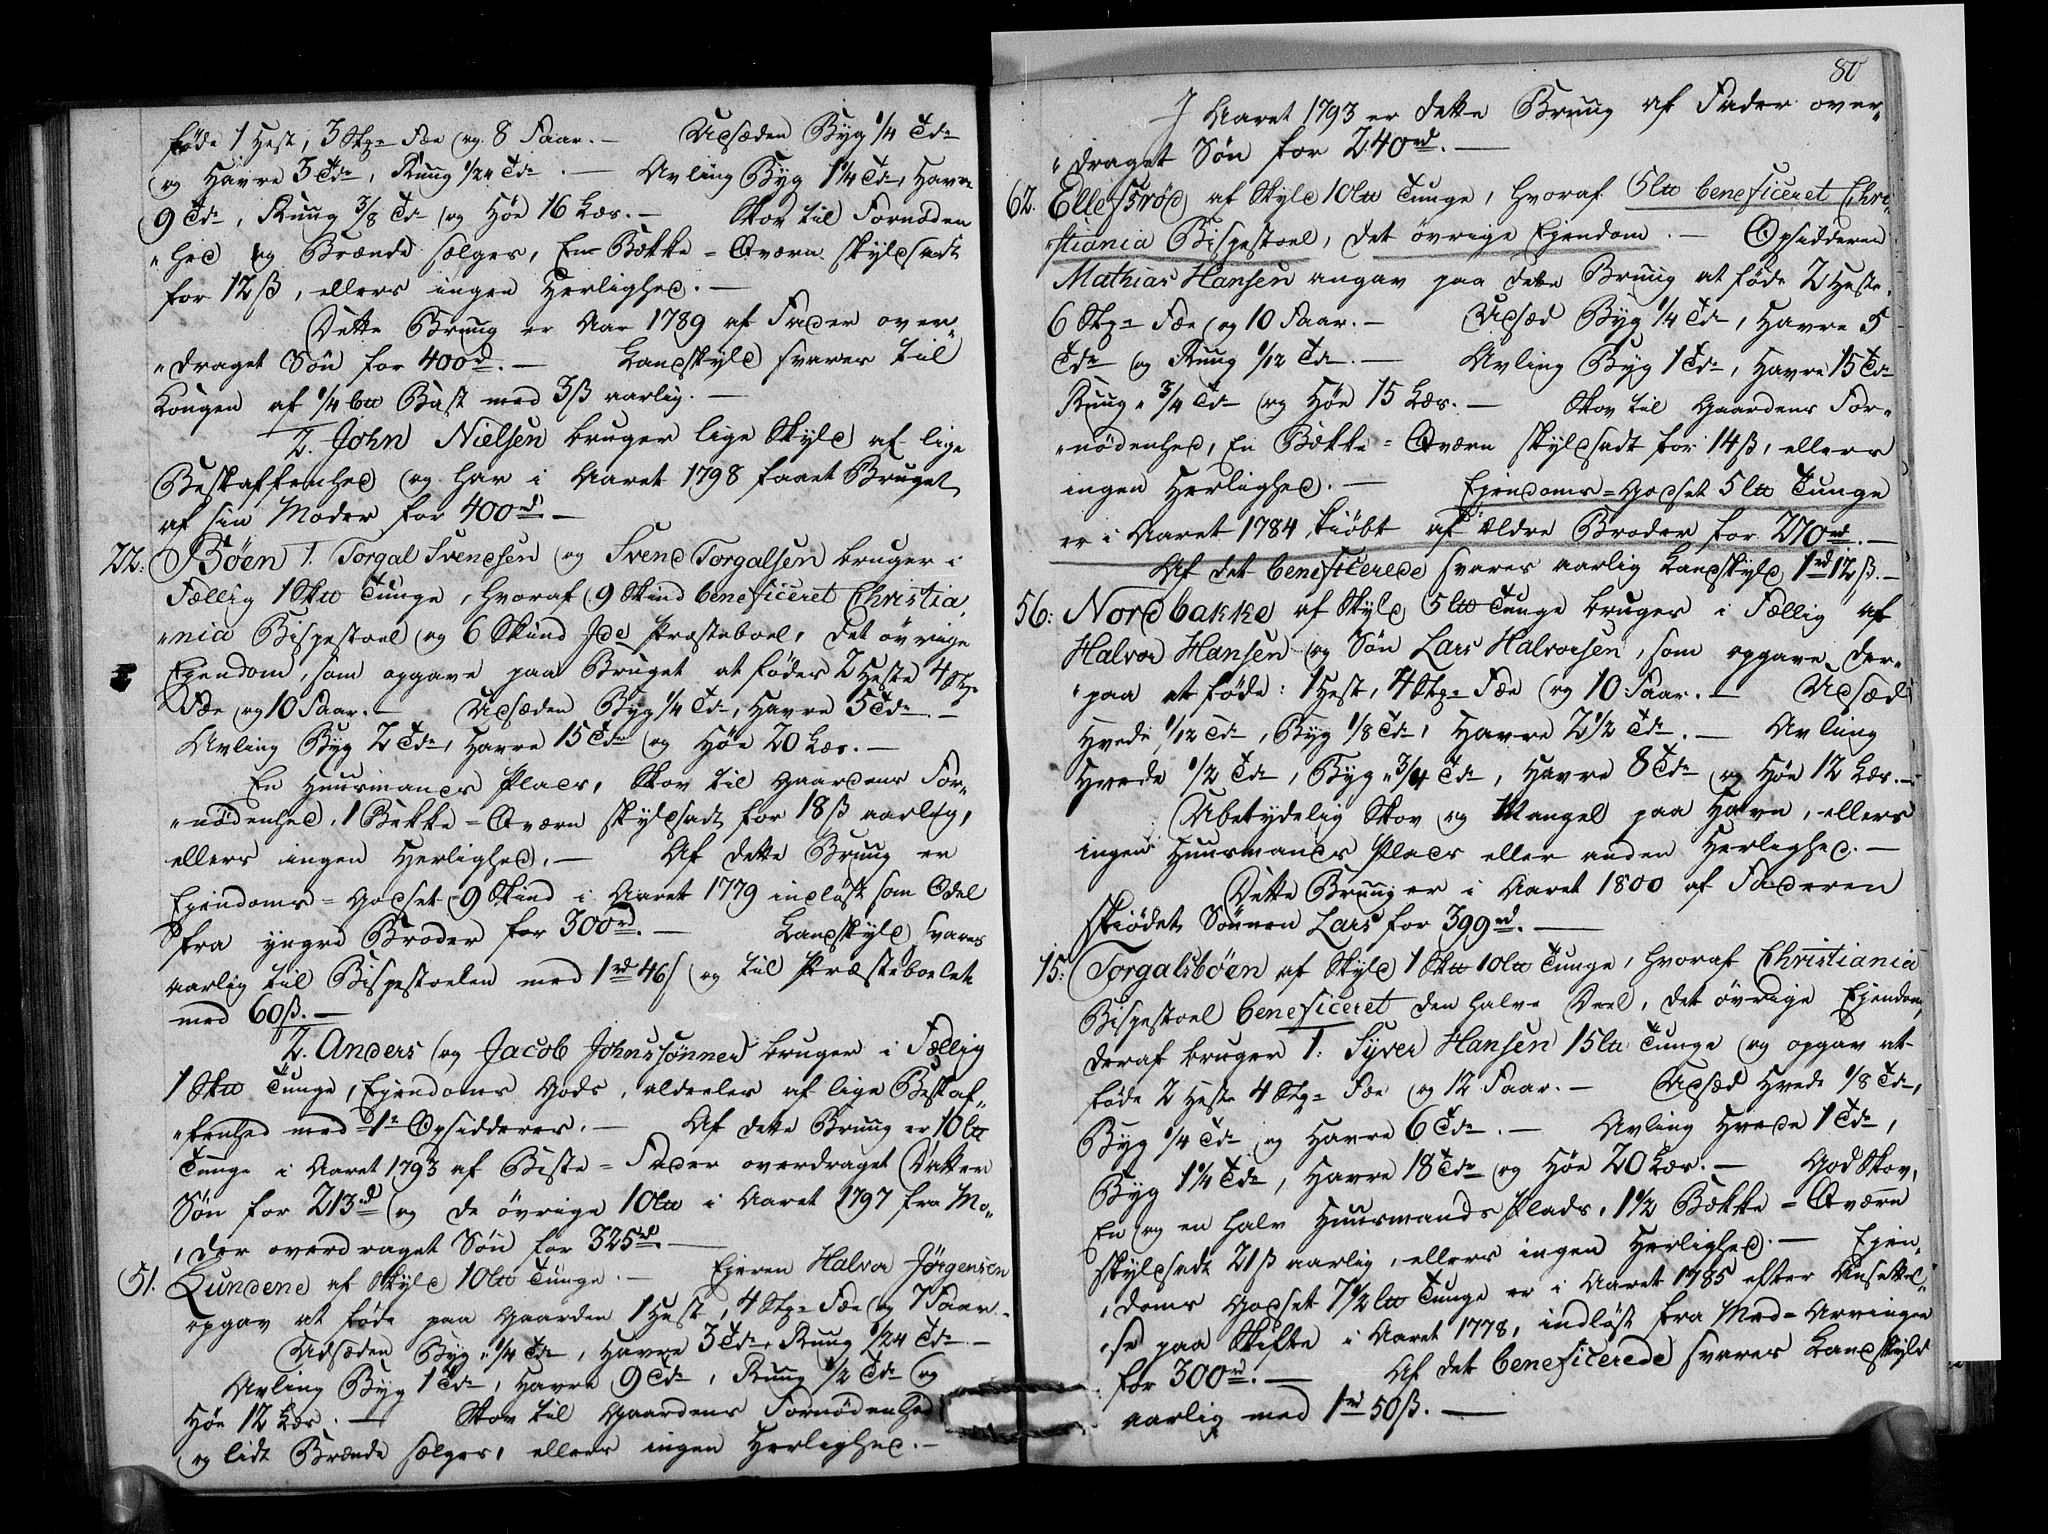 føde 1 Hest, 3 Stk= Fæe og 8 Faar. — Udsæden Byg 1/4 Tde
og Havre 3 Tde, Ruug 1/24 Tde. — Avling Byg 1 1/4 Tde, Havre
9 Tde, Ruug 3/8 Tde og Høe 16 Læs. — Skov til Fornøden
„hed og Brænde sælges, En Bække = Qværn skyldsadt
for 12 ß, ellers ingen Herlighed. —
Dette Bruug er Aar 1789 af Fader over„
„draget Søn for 400 rd. — Landskyld svares til
Kongen af 1/4 lb Bast med 3 ß aarlig. —
2. John Nielsen bruger lige Skyld af lige
Beskaffenhed og har i Aaret 1798 faaet Bruget
af sin Moder for 400 rd. —
22. Bøen 1. Torgal Svendsen og Svend Torgalsen bruger i
Fællig 1 Skb Tunge, hvoraf 9 Skind beneficeret Christia„
„nia Bispestoel og 6 Skind Ide Præsteboel, det øvrige
Ejendom, som opgave paa Bruget at føder 2 Heste 4 Stk=
Fæe og 10 Faar. — Udsæden Byg 1/4 Tde, Havre 5 Tde. —
Avling Byg 2 Tde, Havre 15 Tde og Høe 20 Læs. —
En Huusmands Plads, Skov til Gaardens For„
„nødenhed, 1 Bekke = Qværn skyldsadt for 18 ß aarlig,
ellers ingen Herlighed. — Af dette Bruug er
Ejendoms = Godset 9 Skind i Aaret 1779 indløst som Odel
fra yngre Broder for 300 rd. — Landskyld svares
aarlig til Bispestoelen med 1 rd 46 ß og til Præsteboelet
med 60 ß. —
2. Anders og Jacob Johnssønner bruger i Fællig
1 Skb Tunge, Ejendoms Gods, aldeeles af lige Beskaf„
„fenhed med 1te Opsidderes. — Af dette Bruug er 10 lb
Tunge i Aaret 1793 af Beste = Fader overdraget Datter
Søn for 213 rd og de øvrige 10 lb i Aaret 1797 fra Mo„
„der overdraget Søn for 325 rd. —
51. Lundene af Skyld 10 lb Tunge. — Ejeren Halvor Jørgensen
opgav at føde paa Gaarden 1 Hest, 4 Stk= Fæe og 7 Faar.
Udsæden Byg 1/4 Tde, Havre 3 Tde, Ruug 1/24 Tde. —
Avling Byg 1 Tde, Havre 9 Tde, Ruug 1/2 Tde og
Høe 12 Læs. — Skov til Gaardens Fornødenhed
og lidt Brænde sælges, ellers ingen Herlighed. —
80
I Aaret 1793 er dette Bruug af Fader over„
„draget Søn for 240 rd. —
62. Ellefsrød af Skyld 10 lb Tunge, hvoraf 5 lb beneficeret Chri„
„stiania Bispestoel, det øvrige Ejendom. — Opsidderen
Mathias Hansen angav paa dette Bruug at føde 2 Heste,
6 Stk= Fæe og 10 Faar. — Udsæd Byg 1/4 Tde, Havre 5
Tde og Ruug 1/12 Tde. — Avling Byg 1 Tde, Havre 15 Tde
Ruug 3/4 Tde og Høe 15 Læs. — Skov til Gaardens For„
„nødenhed, En Bække = Qværn skyldsadt for 14 ß, ellers
ingen Herlighed. — Ejendoms = Godset 5 lb Tunge
er i Aaret 1784 kiøbt af ældre Broder for 270 rd. —
Af det beneficerede svares aarlig Landskyld 1 rd 12 ß. —
56: Nordbakke af Skyld 5 lb Tunge bruges i Fællig af
Halvor Hansen og Søn Lars Halvorsen, som opgave der„
„paa at føde: 1 Hest, 4 Stk= Fæe og 10 Faar. — Udsæd
Hvede 1/12 Tde, Byg 1/8 Tde, Havre 2 1/2 Tde. — Avling
Hvede 1/2 Tde, Byg 3/4 Tde, Havre 8 Tde og Høe 12 Læs. —
Ubetydelig Skov og Mangel paa Havn, ellers
ingen Huusmands Plads eller anden Herlighed. —
Dette Bruug er i Aaret 1800 af Faderen
skiødet Sønnen Lars for 399 rd. —
15: Torgalsbøen af Skyld 1 Skb 10 lb Tunge, hvoraf Christiania
Bispestoel beneficeret den halve Deel, det øvrige Ejendom,
deraf bruger 1: Syver Hansen 15 lb Tunge og opgav at
føde 2 Heste 4 Stk= Fæe og 12 Faar. — Udsæd Hvede 1/8 Tde,
Byg 1/4 Tde og Havre 6 Tde. — Avling Hvede 1 Tde,
Byg 1 1/4 Tde, Havre 18 Tde og Høe 20 Læs. — God Skov,
En og en halv Huusmands Plads, 1 1/2 Bække = Qværn
skyldsadt 21 ß aarlig, ellers ingen Herlighed. — Ejen„
„doms Godset 7 1/2 lb Tunge er i Aaret 1785 efter Ansættel„
„se paa Skifte i Aaret 1778, indløst fra Med = Arvingen
for 300 rd. — Af det beneficerede svares Landskyld
aarlig med 1 rd 50 ß. —